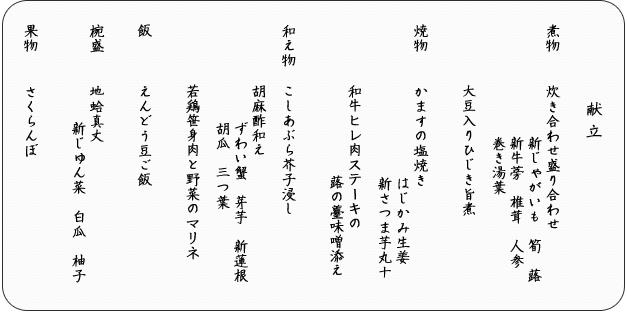 献立
煮物　炊き合わせ盛り合わせ
新じゃがいも　筍　蕗
新牛蒡　椎茸　人参
巻き湯葉
大豆入りひじき旨煮
焼物　かますの塩焼き
はじかみ生姜
新さつま芋丸十
和牛ヒレ肉ステーキの
蕗の薹味噌添え
和え物　こしあぶら芥子浸し
胡麻酢和え
ずわい蟹　芽芋　新蓮根
胡瓜　三つ葉
若鶏笹身肉と野菜のマリネ
飯　えんどう豆ご飯
椀盛　地蛤真丈
新じゅん菜　白瓜　柚子
果物　さくらんぼ